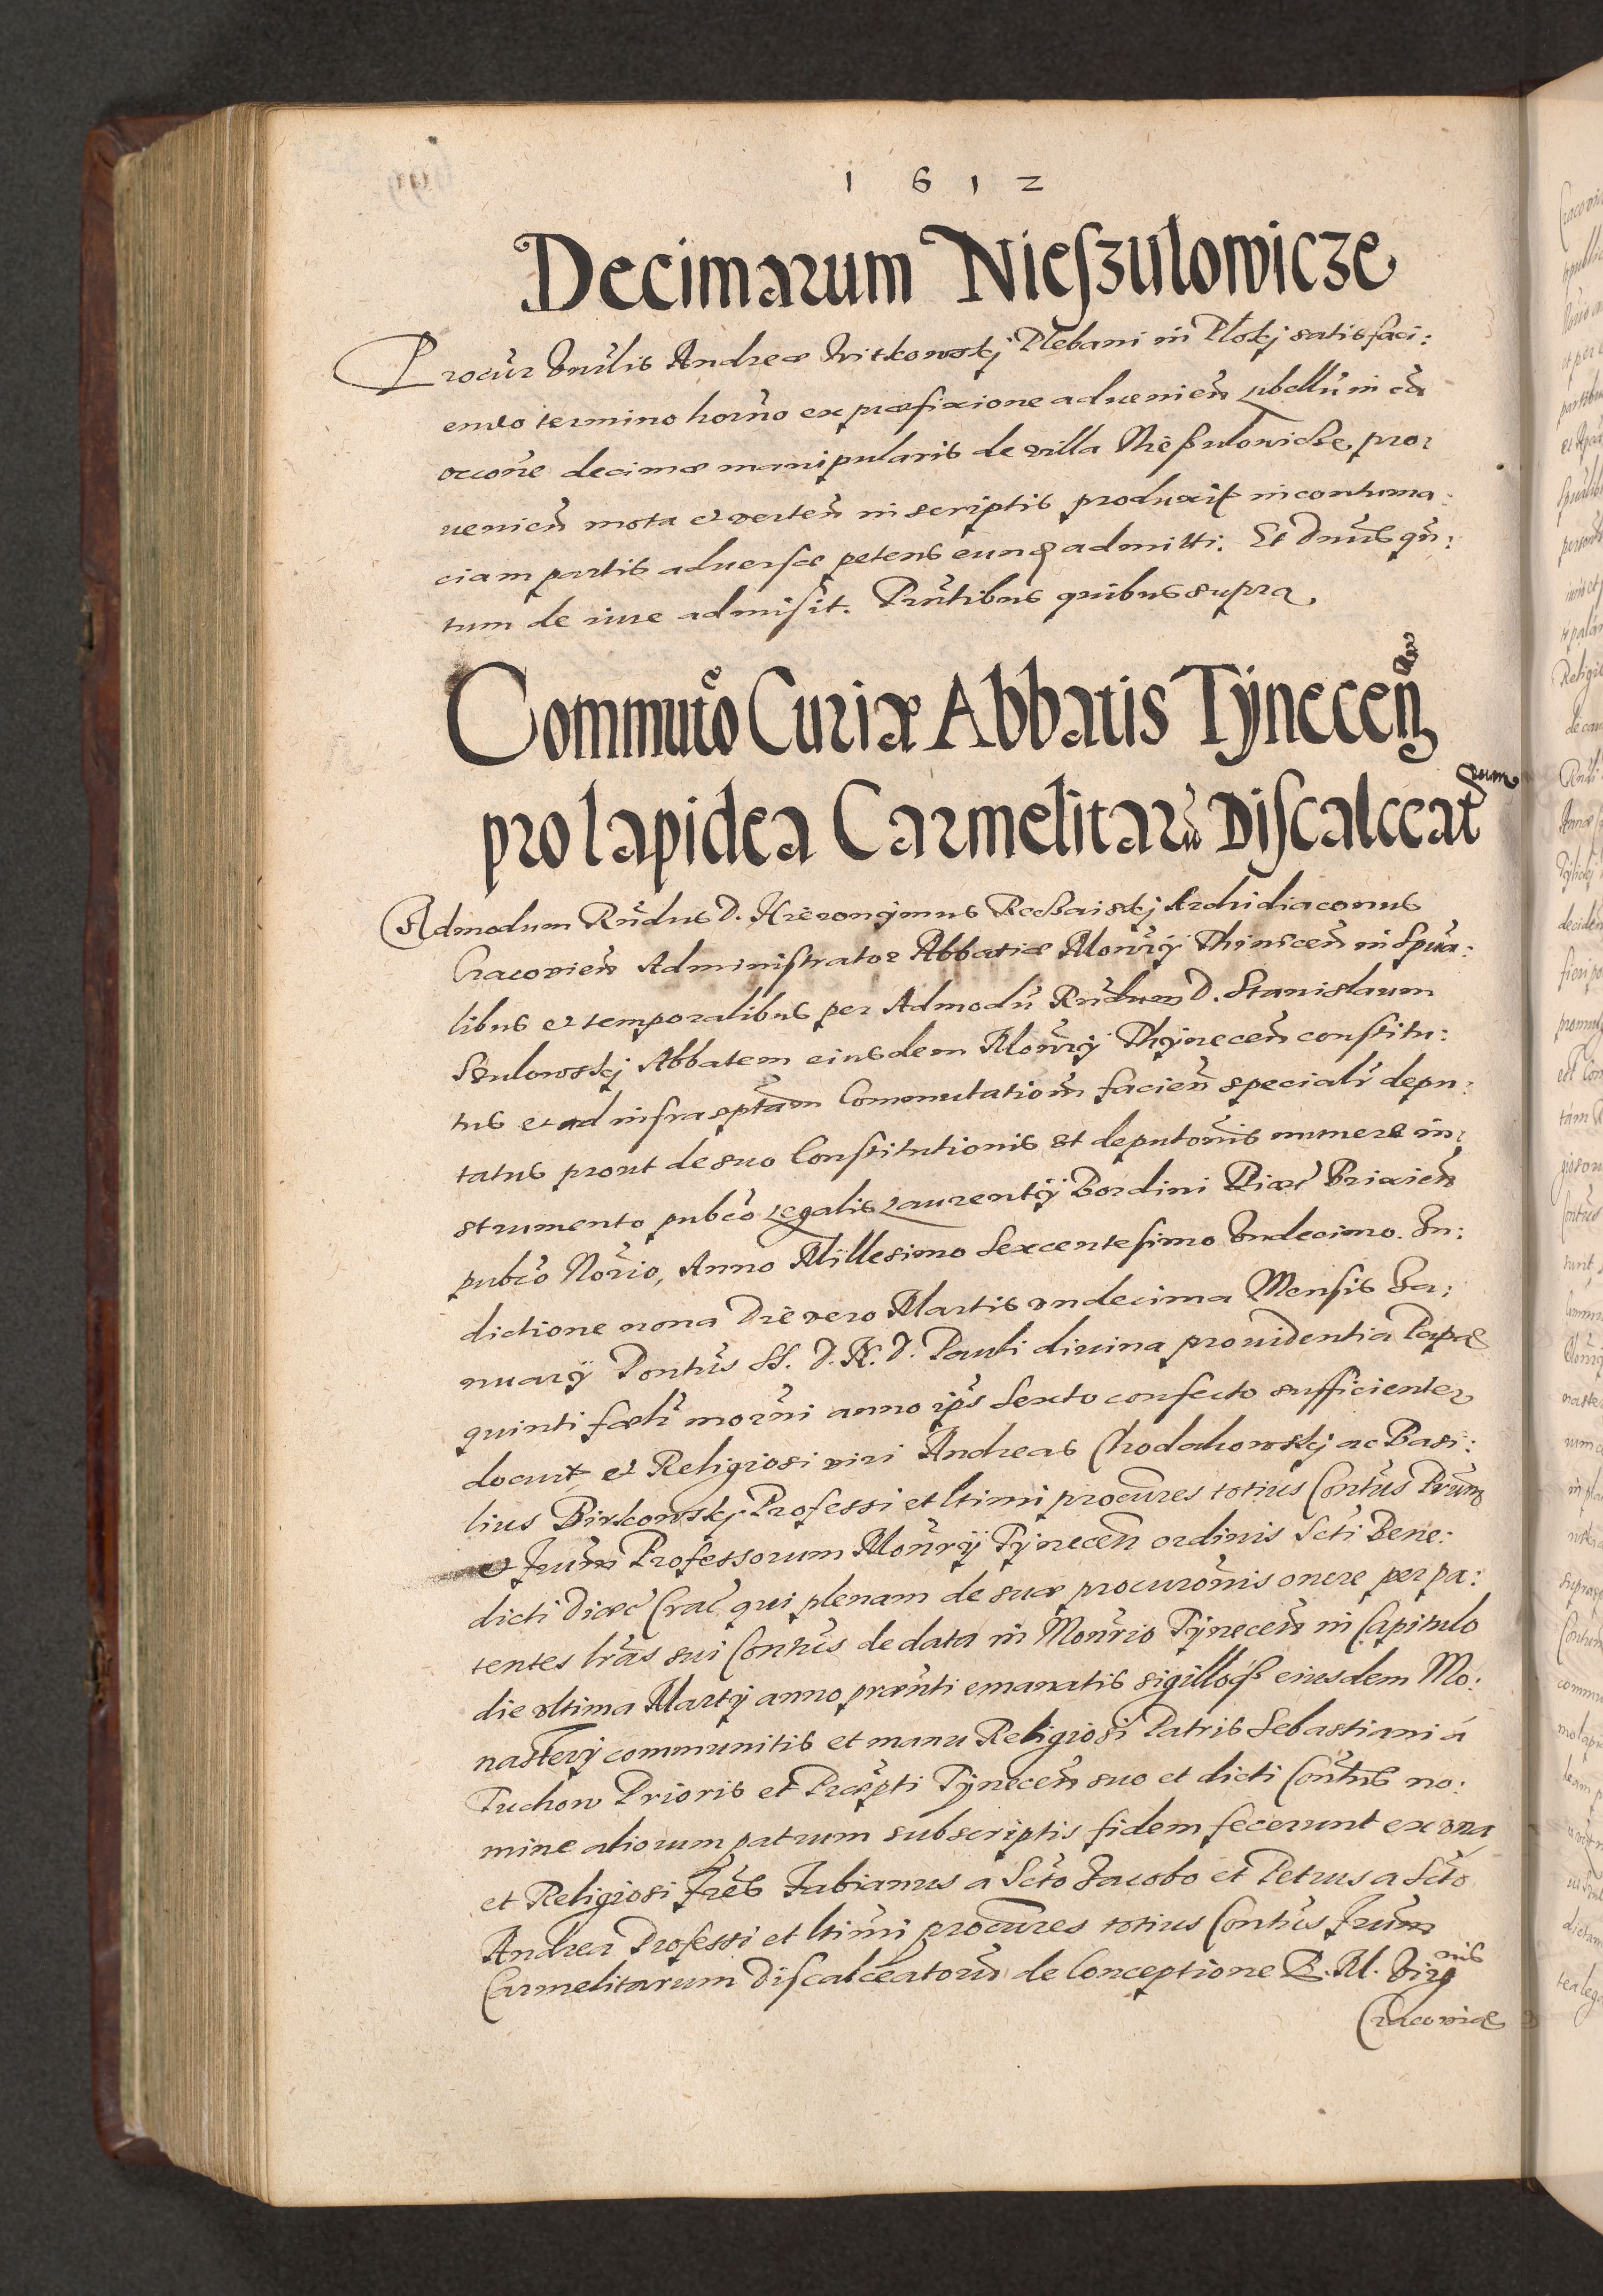 1612
Decimarum Nieszulowicze
Procur Vnrlis Andreæ Witkowskj Plebani in Ploskj satisfaci:
endo termino horno ex præfixione aduenien libellū in cā
occōne decimæ manipularis de villa Nießulowicze pro:
uenien mota et verten in scriptis produxit in contuma:
ciam partis aduersæ petens eunq admitti. Et Dnus qn:
tum de iure admisit. Pntibus quibus supra
Commuto Curiæ Abbatis Tÿnecen
pro lapidea Carmelitarū Discalceat
rum
Admodum Rndus D. Hieronÿmus Archidiaconus
Cracouien Administrator Abbatiæ Monrÿ Thinecen in Spua:
libus et temporalibus per Admodū Rndum D. Stanislaum
Sulowskj Abbatem eiusdem Monrÿ Thÿnecen constitu:
tus et ad infrasptam Commutationm facien speciali depu:
tatus prout de suo Constitutionis et deputonis munere in:
strumento pubco legalis Laurentÿ Bordini Brixien
pubco Norio, Anno Millesimo Sexcentesimo Vndecimo. In:
dictione nona Die vero Martis vndecima Mensis Ja:
nuarÿ Pontus SS. D. N. D. Pauli diuina prouidentia Papæ
quinti fœlr morni anno ips Sexto confecto sufficienter
docuit et Religiosi viri Andreas Chodakowskj ac Basi:
lius Birkowskj Professi et ltimi procures totius Contus Prum
et frum Professorum Monrÿ Tÿnecen ordinis Scti Bene:
dicti Diæc Crac qui plenam de suæ procuronis onere per pa:
tentes lras sui Contus de data in Monrio Tÿnecen in Capitulo
die vltima Martÿ anno prænti emanatis sigilloq eiusdem Mo:
nasterÿ communitis et manu Religiosi Patris Sebastiani á
Tuchow Prioris et Præpti Tÿnecen suo et dicti Contus no:
mine aliorum patrum subscriptis fidem fecerunt ex vna
et Religiosi fres Fabianus a Scto Jacobo et Petrus a Scto
Andrea Professi et ltimi procures totius Contus frum
Carmelitarum Discalceatorum de Conceptione B. M. Virgnis
Cracouiæ